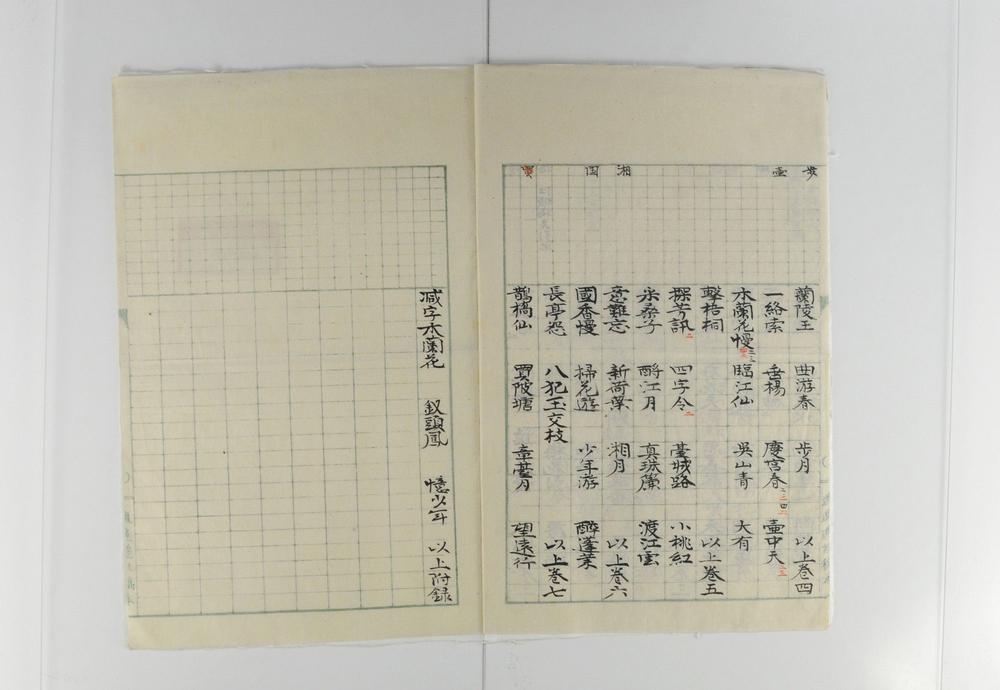 蘭陵王 曲游春 步月 以上卷四
一絡索 垂楊 慶宮春 壺中天
木蘭花慢 臨江仙 吳山青 大有
擊梧桐 以上卷五
探芳訊 四字令 臺城路 小桃紅
采桑子 酹江月 真珠簾 渡江雲
意難忘 新荷葉 湘月 以上卷六
國香慢 掃花遊 少年游 醉蓬萊
長亭怨 八犯玉交枝 以上卷七
鵲橋仙 買陂塘 章臺月 望遠行
壺
湘
国
買
减字木蘭花 釵頭鳳 憶少年 以上附録